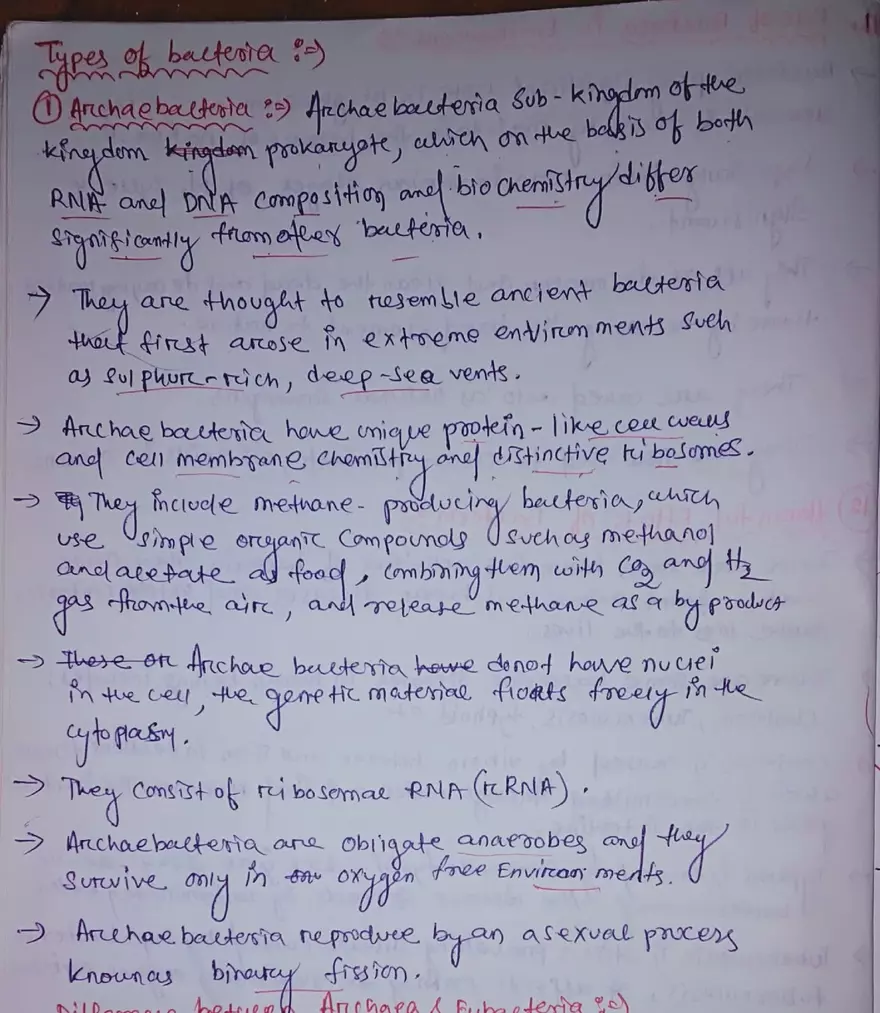 Types of bacteria :=)
① Archaebacteria :=) Archaebacteria sub-kingdom of the
kingdom kingdom prokaryote, which on the basis of both
RNA and DNA composition and biochemistry differ
significantly from other bacteria.
→ They are thought to resemble ancient bacteria
that first arose in extreme environments such
as sulphur-rich, deep-sea vents.
→ Archaebacteria have unique protein-like cell walls
and cell membrane chemistry and distinctive ribosomes.
→ They include methane-producing bacteria, which
use simple organic compounds such as methanol
and acetate as food, combining them with CO2 and H2
gas from the air, and release methane as a by product
→ These or Archae bacteria have donot have nuclei
in the cell, the genetic material floats freely in the
cytoplasm.
→ They consist of ribosomal RNA (rRNA).
→ Archaebacteria are obligate anaerobes and they
survive only in oxygen free Environments.
→ Archaebacteria reproduce by an asexual process
known as binary fission.
Difference between Archaea & Eubacteria :=)